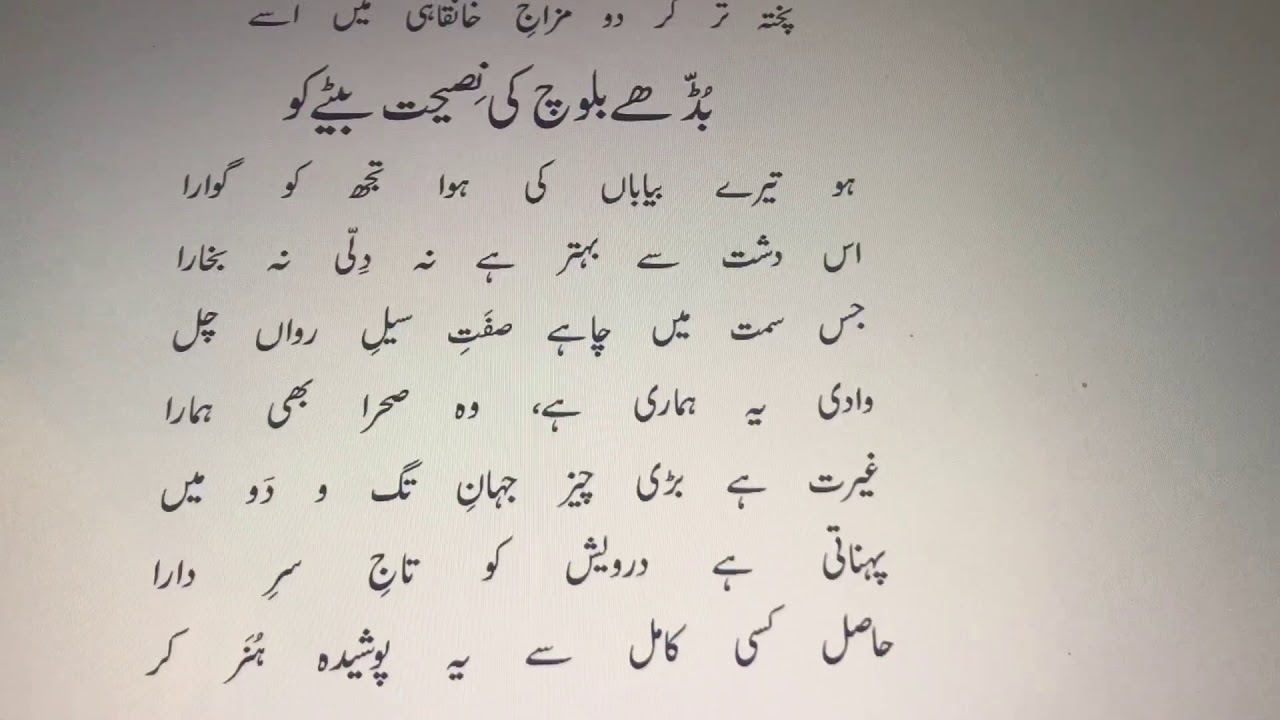 پختہ تر کر دو مزاجِ خانقاہی میں اسے
بُڈّھے بلوچ کی نِصیحت بیٹے کو
ہو تیرے بیاباں کی ہوا تجھ کو گوارا
اس دشت سے بہتر ہے نہ دِلّی نہ بخارا
جس سمت میں چاہے صفَتِ سیلِ رواں چل
وادی یہ ہماری ہے، وہ صحرا بھی ہمارا
غیرت ہے بڑی چیز جہانِ تگ و دَو میں
پہناتی ہے درویش کو تاجِ سرِ دارا
حاصل کسی کامل سے یہ پوشیدہ ہُنَر کر